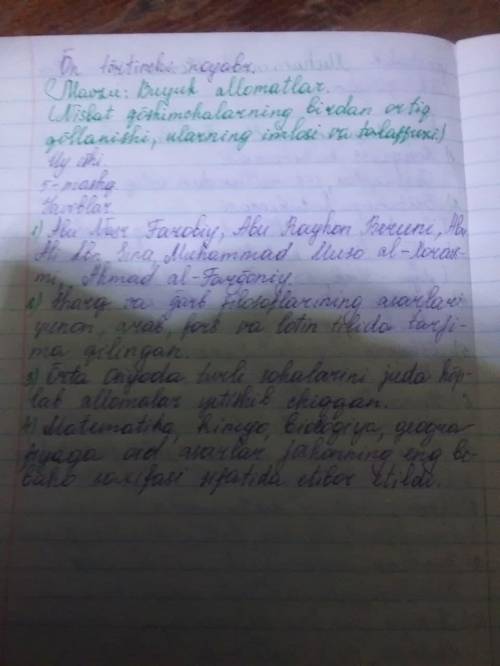 Ōn tōrtinchi noyabr.
(Mavzu: Buyuk allomatlar.
(Nisbat qōshimchalarning birdan ortiq
qōllanishi, ularning imlosi va talaffuzi)
Uy ishi
5-mashq
Javoblar
1) Abu Nasr Farobiy, Abu Rayhon Beruni, Abu
Ali Ibn Sino, Muhammad Muso al-Xoraz-
miy, Ahmad al-Farģoniy.
2) Sharq va ģarb filosoflarining asarlari
yunon, arab, fors va lotin tilida tarji-
ma qilingan.
3) Ōrta Osiyoda turli sohalarini juda kōp-
lab allomalar yetishib chiqqan.
4) Matematika, kimyo, biologiya, geogra
fiyaga oid asarlar jahonning eng be-
baho saxifasi sifatida etibor etildi.